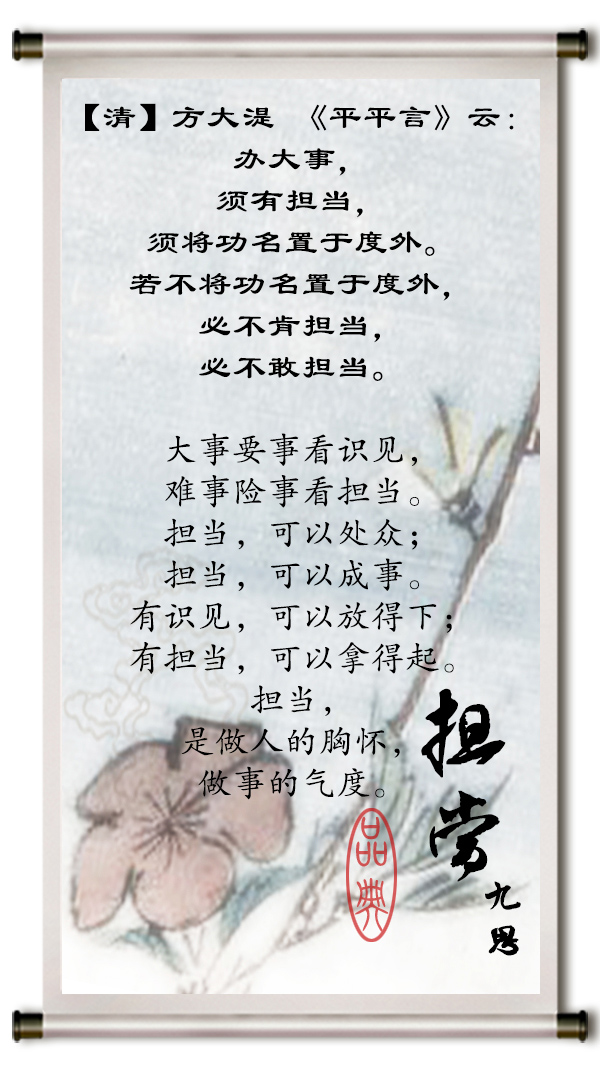 【清】方大湜 《平平言》云：
办大事，
须有担当，
须将功名置于度外。
若不将功名置于度外，
必不肯担当，
必不敢担当。
大事要事看识见，
难事险事看担当。
担当，可以处众；
担当，可以成事。
有识见，可以放得下；
有担当，可以拿得起。
担当，
是做人的胸怀，
做事的气度。
担当
九思
品典